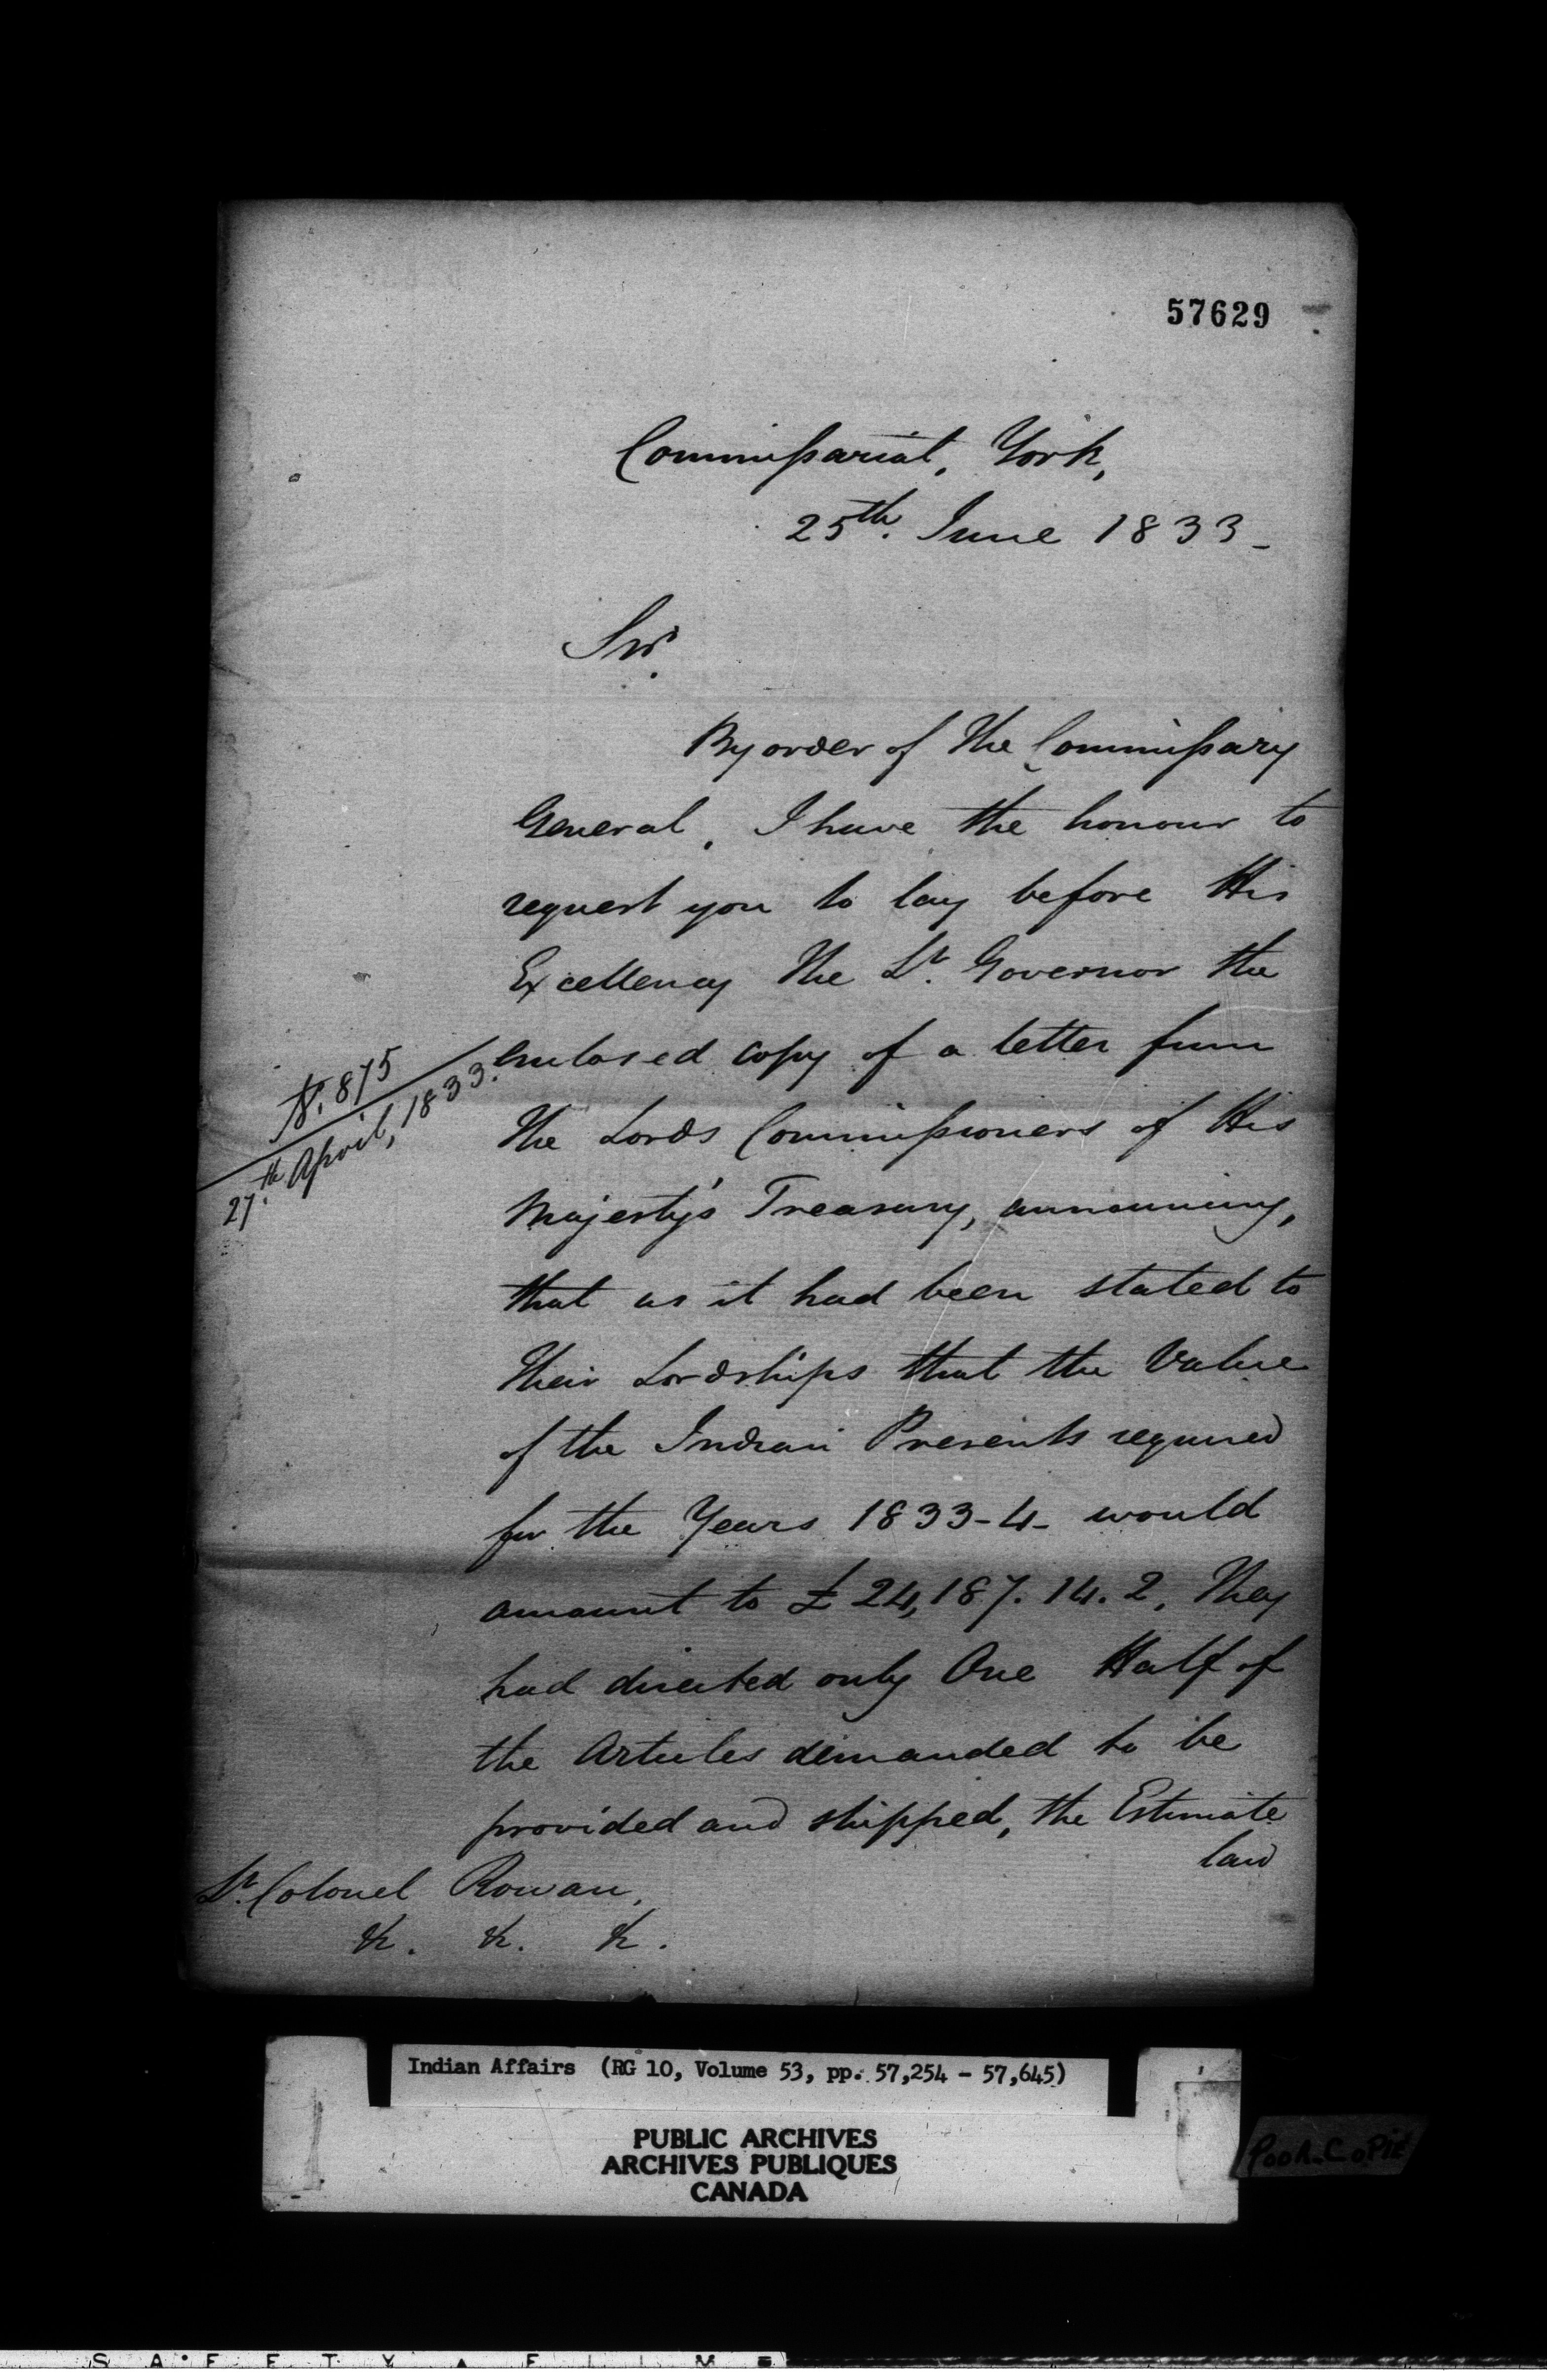 57629
Commissariat, York,
25th. June 1833_
Sir.
By order of The Commissary
General, I have the honour to
request you to lay before His
Excellency The Lt. Governor the
enclosed copy of a letter from
N. 875
27th. April, 1833.
The Lords Commissioners of His
Majesty's Treasury, announcing,
that as it had been stated to
Their Lordships that the Value
of the Indian Presents required
for the Years 1833-4- would
amount to £24,187.14.2, They
had directed only One Half of
the Articles demanded to be
provided and shipped, the Estimate
laid
Lt. Colonel Rowan,
&c. &c. &c.
Indian Affairs (RG 10, Volume 53, pp. 57,254 - 57,645)
PUBLIC ARCHIVES
ARCHIVES PUBLIQUES
CANADA
POOR-COPIE
SAFETY FILM